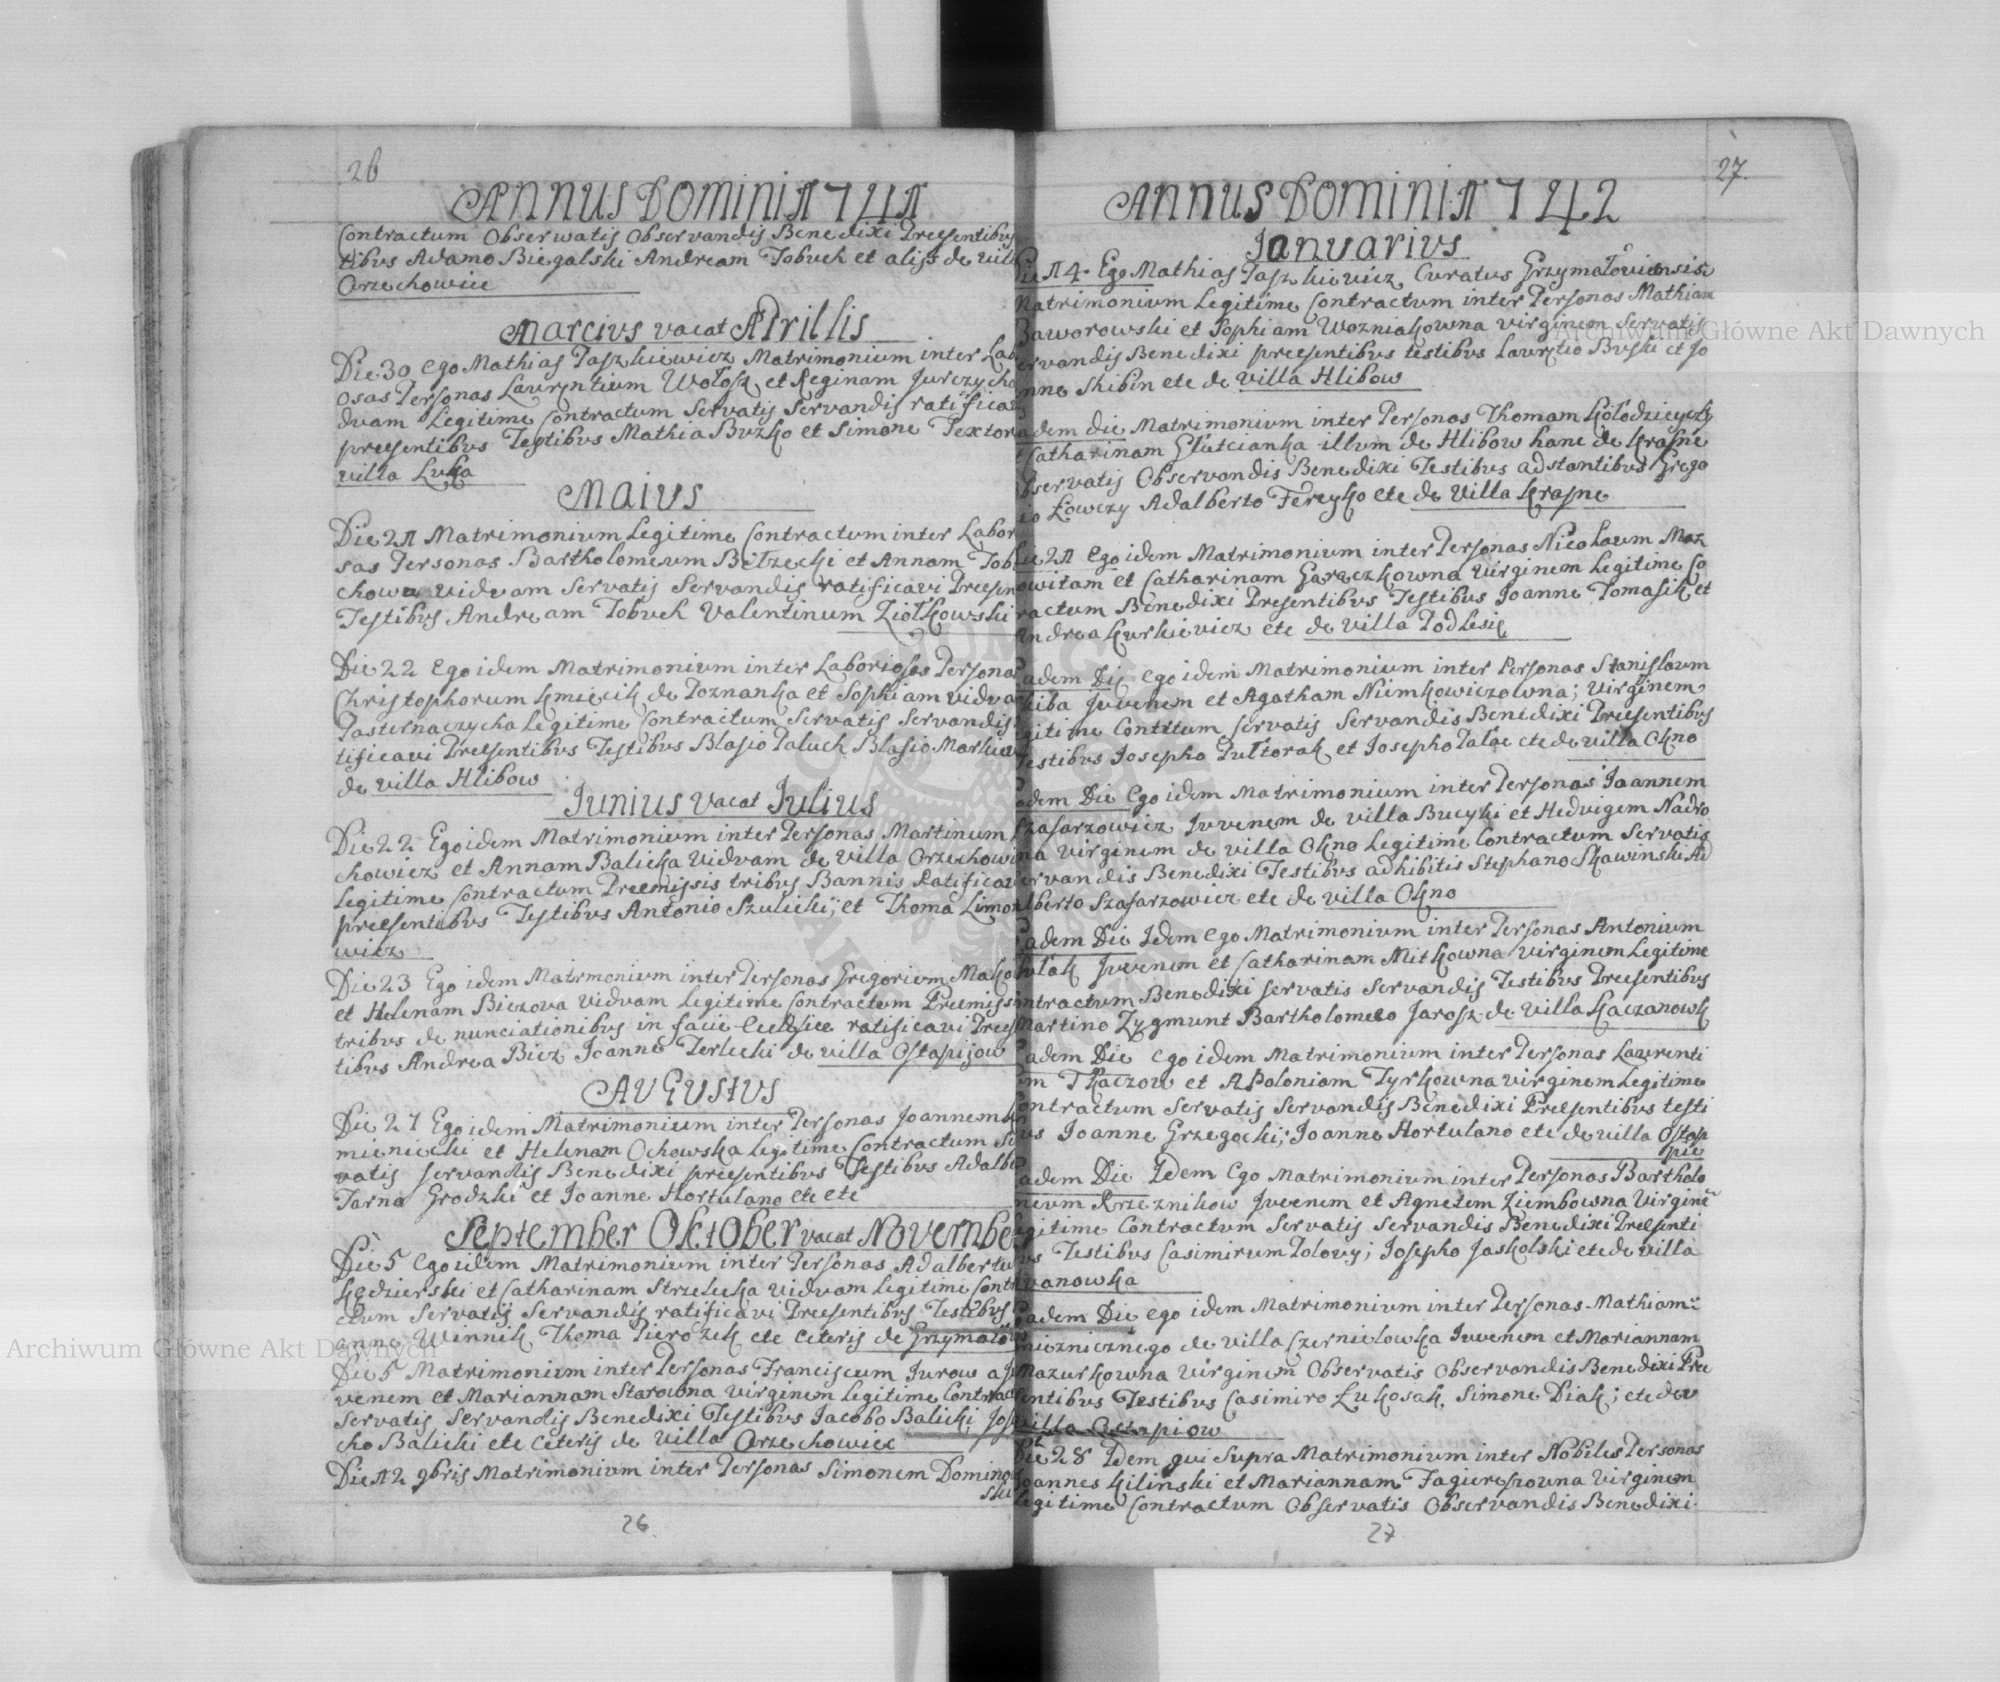 26
ANNUS DOMINI 1741
Contractum Obserwatis Observandis Benedixi Præsentibus
tibus Adamo Biegalski Andream Tobuch et alijs de villa
Orzechowiec
Marcius vacat APrillis
Die 30 Ego Mathias Paszkiewicz Matrimonium inter Lab
osas Personas Laurentium Wołosz et Reginam Jurczycho
duam Legitime Contractum Servatis Servandis ratificavi
præsentibus Testibus Mathia Buzko et Simone Textor
villa Luka
Maius
Die 21 Matrimonium Legitime Contractum inter Labor
sas Personas Bartholomeum Bełzecki et Annam Tobu
chowa viduam Servatis Servandis ratificavi Præsen
Testibus Andream Tobuch Valentinum Ziołkowski
Die 22 Ego idem Matrimonium inter Laboriosas Persona
Christophorum Kmiecik de Poznanka et Sophiam vidua
Pasternaczycha Legitime Contractum Servatis Servandis
tificavi Præsentibus Testibus Blasio Paluch Blasio Markie
de villa Hlibow
Junius vacat Julius
Die 22 Ego idem Matrimonium inter Personas Martinum
chowicz et Annam Balicka Viduam de villa Orzechowi
Legitime Contractum Præmissis tribus Bannis Ratificavi
præsentibus Testibus Antonio Szulicki, et Thoma Limon
wicz
Die 23 Ego idem Matrmonium inter Personas Gregorium Mako
et Helenam Biezova viduam Legitime Contractum Præmiss
tribus de nunciationibus in facie Ecclesiæ ratificavi Præs
tibus Andrea Biez Joanne Terlecki de villa Ostapijow
AUGUStUS
Die 27 Ego idem Matrimonium inter Personas Joannem K
mieniecki et Helenam Ochowska Legitime Contractum Se
vatis servandis Benedixi præsentibus Testibus Adalbe
Tarna Grodzki et Joanne Hortulano etc etc
September OktOber vacat Novembe
Die 5 Ego idem Matrimonium inter Personas Adalbertu
Kędzierski et Catharinam Strzelecka viduam legitime Cont
ctum Servatis Servandis ratificavi Præsentibus Testibus
anne Winnik Thoma Pierożek etc ceteris de Grzymałow
Die 5 Matrimonium inter Personas Franciscum Jurows a Ju
venem et Mariannam Starowna virginem legitime Contrac
Servatis Servandis Benedixi Testibus Jacobo Balicki Jos
cho Balicki etc Ceteris de villa Orzechowiec
Die 12 9bris Matrimonium inter Personas Simonem Domino
ski
26
27.
ANNUS DOMINI 1742
Januarius
Die 14. Ego Mathias Paszkiewicz Curatus Grzymałoviensis
Matrimonium Legitime Contractum inter Personas Mathiam
Baworowski et Sophiam Wozniakowna virginem Servatis
servandis Benedixi præsentibus testibus Lauretio Buski et Jo
nne Skibin etc de villa Hlibow
adem die Matrimonium inter Personas Thomam Kołodzieyczÿk
Catharinam Glutcianka illum de Hlibow hanc de Krasne
bservatis Observandis Benedixi Testibus adstantibus Grego
io Łowczy Adalberto Fereyko etc de villa Krasne
ie 21 Ego idem Matrimonium inter Personas Nicolaum Maz
owitam et Catharinam Garączkowna virginem Legitime Co
ractum Benedixi Præsentibus Testibus Joanne Tomasik et
Andrea Kurkiewicz etc de villa Podlesie
adem Die Ego idem Matrimonium inter Personas Stanislaum
kiba Juvenem et Agatham Niemkowiczowna; virginem
gitime Conttum Servatis Servandis Benedixi Præsentibus
Testibus Josepho Pułtorak et Josepho Palac etc de villa Okno
adem Die Ego idem Matrimonium inter Personas Joannem
Szafarzowicz Juvenem de villa Bucyki et Hedvigem Nadro
na virginem de villa Okno Legitime Contractum Servatis
servandis Benedixi Testibus adhibitis Stephano Skawinski Ad
alberto Szafarzowicz etc de villa Okno
adem Die Idem Ego Matrimonium inter Personas Antonium
ulak Juvenem et Catharinam Mitkowna virginem Legitime
ntractum Benedixi servatis servandis Testibus Præsentibus
Martino Zygmunt Bartholomeo Jarosz de villa Kaczanowk
adem Die Ego idem Matrimonium inter Personas Laurenti
m Tkaczow et APoloniam Tyrkowna virginem Legitime
ontractum Servatis Servandis Benedixi Præsentibus testi
us Joanne Grzegocki; Joanne Hortulano etc de villa Ostap
pie
adem Die Idem Ego Matrimonium inter Personas Bartholo
meum Krzeznikow Juvenem et Agnetem Ziembowna Virginē
egitime Contractum Servatis Servandis Benedixi Præsenti
us Testibus Casimirum Polovy; Josepho Jaskolski etc de villa
wanowka
adem Die Ego idem Matrimonium inter Personas Mathiam
mieznicznego de villa Czernielowka Juvenem et Mariannam
Mazurkowna virginem Observatis Observandis Benedixi Præ
sentibus Testibus Casimiro Łukosak, Simone Diak; etc de
villa Ostapiow
Die 28 Idem qui Supra Matrimonium inter Nobiles Personas
Joannes Kilinski et Mariannam Virginem
legitime Contractum Observatis Observandis Benedixi.
27
Archiwum Główne Akt Dawnych
Archiwum Główne Akt Dawnych